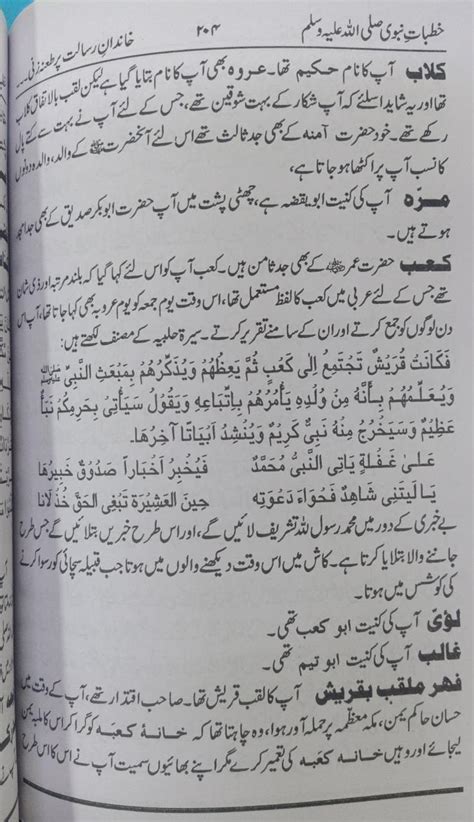 خطباتِ نبوی صلی اللہ علیہ وسلم ۲۰۴ خاندانِ رسالت پر طعنہ زنی ...
کلاب آپ کا نام حکیم تھا۔ عروہ بھی آپ کا نام بتایا گیا ہے لیکن لقب بالاتفاق کلاب
تھا اور یہ شاید اسلئے کہ آپ شکار کے بہت شوقین تھے، جس کے لئے آپ نے بہت سے کتے پال
رکھے تھے۔ خود حضرت آمنہ کے بھی جد ثالث تھے اس لئے آنحضرت ﷺ کے والد، والدہ دونوں
کا نسب آپ پر اکٹھا ہو جاتا ہے،
مرّہ آپ کی کنیت ابو یقضہ ہے، چھٹی پشت میں آپ حضرت ابو بکر صدیق کے بھی جد امجد
ہوتے ہیں۔
کعب حضرت عمر کے بھی جد ثامن ہیں۔ کعب آپ کو اس لئے کہا گیا کہ بلند مرتبہ اور ذی شان
تھے جس کے لئے عربی میں کعب کا لفظ مستعمل تھا، اس وقت یوم جمعہ کو یوم عروبہ بھی کہا جاتا تھا، آپ اس
دن لوگوں کو جمع کرتے اور ان کے سامنے تقریر کرتے۔ سیرۃ حلبیہ کے مصنف لکھتے ہیں:
فَكَانَتْ قُرَيْشٌ تَجْتَمِعُ اِلٰى كَعْبٍ ثُمَّ يَعِظُهُمْ وَيُذَكِّرُهُمْ بِمَبْعَثِ النَّبِيِّ ﷺ
وَيُعَلِّمُهُمْ بِأَنَّهٗ مِنْ وُلْدِهٖ يَأْمُرُهُمْ بِاتِّبَاعِهٖ وَيَقُوْلُ سَيَأْتِىْ بِحَرِمِكُمْ نَبَأٌ
عَظِيْمٌ وَسَيَخْرُجُ مِنْهُ نَبِىٌّ كَرِيْمٌ وَيُنْشِدُ اَبْيَاتًا آخِرُهَا۔
عَلىٰ غَفْلَةٍ يَاتِى النَّبِىُّ مُحَمَّدٌ فَيُخْبِرُ اَخْبَاراً صَدُوْقٌ خَبِيْرُهَا
يَا لَيْتَنِىْ شَاهِدٌ فَحْوَاءَ دَعْوَتِهٖ حِيْنَ الْعَشِيْرَةِ تَبْغِى الْحَقَّ خُذْلَانًا
بے خبری کے دور میں محمد رسول اللہ تشریف لائیں گے، اور اس طرح خبریں بتلائیں گے جس طرح
جاننے والا بتلایا کرتا ہے۔ کاش میں اس وقت دیکھنے والوں میں ہوتا جب قبیلہ سچائی کو رسوا کرنے
کی کوشش میں ہوتا۔
لؤی آپ کی کنیت ابو کعب تھی۔
غالب آپ کی کنیت ابو تیم تھی۔
فہر ملقب بقریش آپ کا لقب قریش تھا۔ صاحب اقتدار تھے، آپ کے وقت میں
حسان حاکم یمن، مکہ معظمہ پر حملہ آور ہوا، وہ چاہتا تھا کہ خانۂ کعبہ کو گرا کر اس کا ملبہ یمن
لیجائے اور وہیں خانہ کعبہ کی تعمیر کرے مگر اپنے بھائیوں سمیت آپ نے اس کا اس طرح